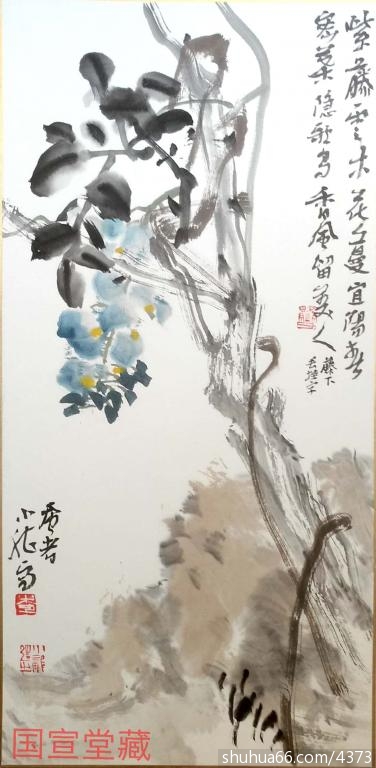 紫藤雲木花蔓宜陽春
密葉隱歌鳥香風留美人
藤下
丢掛字
国宣堂藏
shuhua66.com/4373